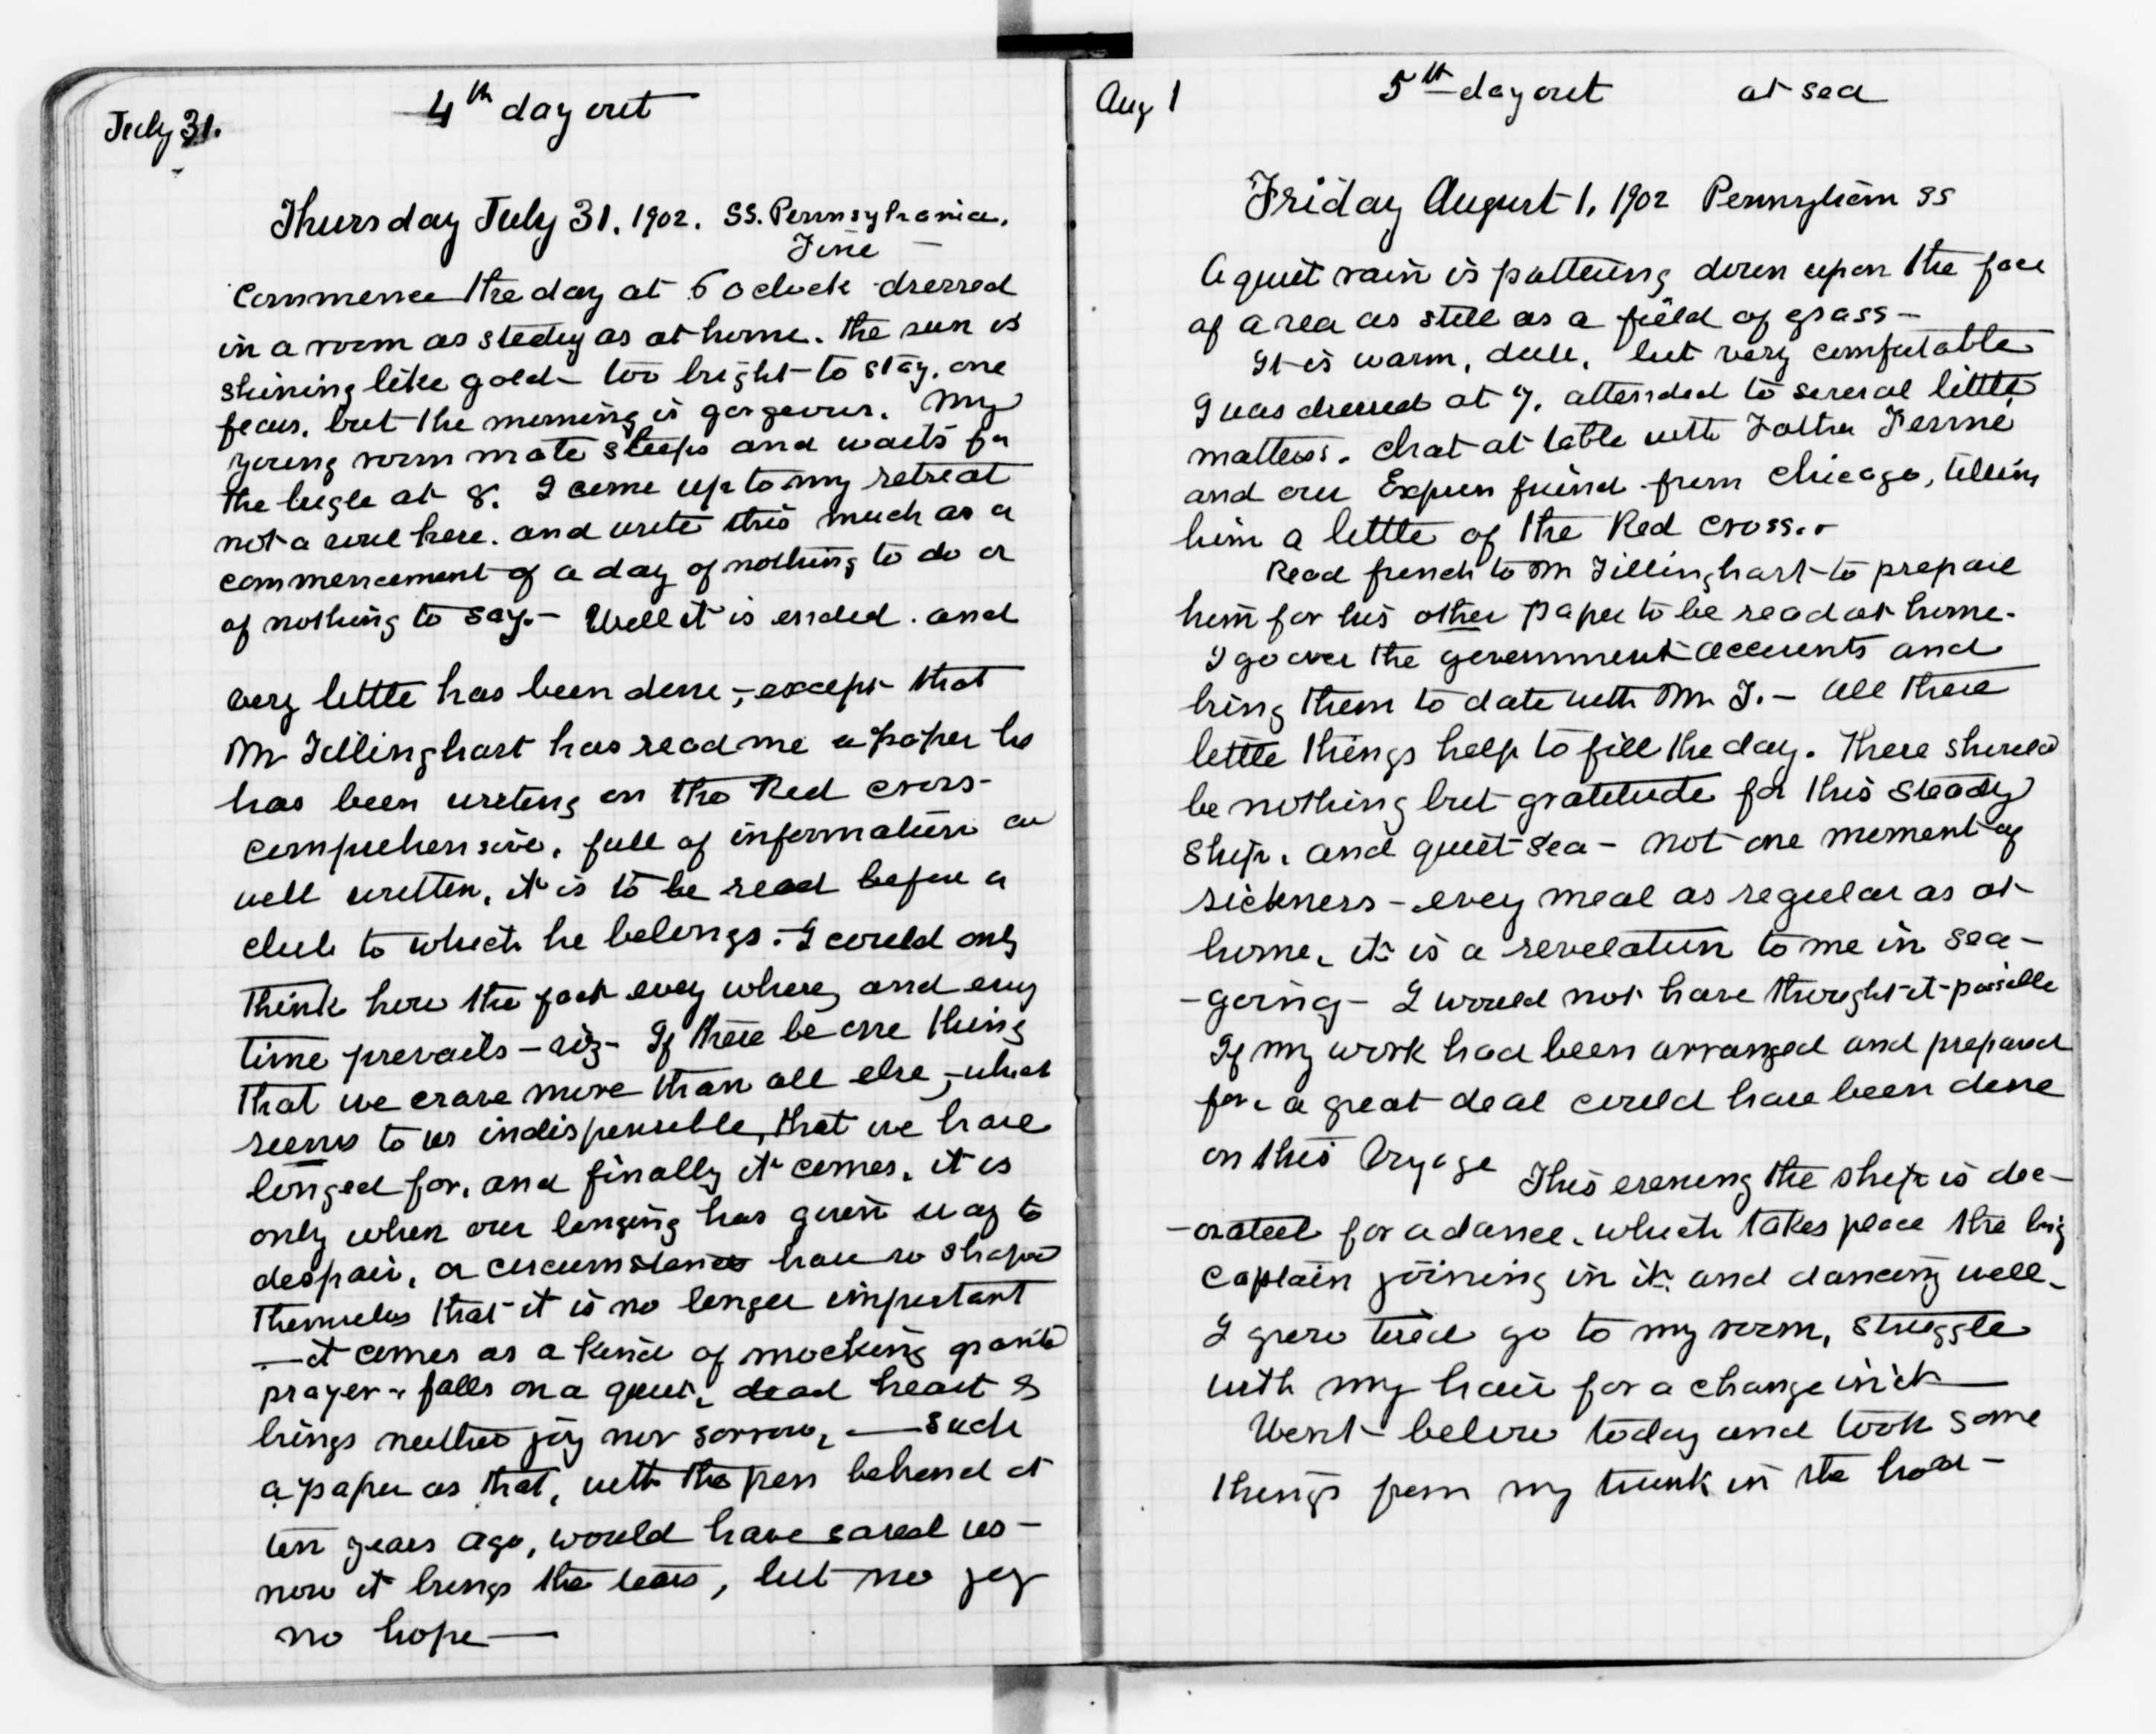 July 31.
4th day out
Thursday July 31. 1902. SS. Pennsylvania.
Fine —
Commence the day at 6 oclock dressed
in a room as steady as at home. the sun is
shining like gold - too bright to stay. one
fears. but the morning is gorgeous. My
young room mate sleeps and waits for
the bugle at 8. I come up to my retreat
not a soul here. and write this much as a
commencement of a day of nothing to do or
of nothing to say. - Well it is ended. and
very little has been done, - except that
Mr Tillinghast has read me a paper he
has been writing on the Red Cross -
comprehensive, full of information and
well written, it is to be read before a
club to which he belongs. - I could only
think how the fact every where, and every
time prevails - viz - If there be one thing
that we crave more than all else, - what
seems to us indispensible, that we have
longed for, and finally it comes, it is
only when our longing has given way to
despair, or circumstances have so shaped
themselves that it is no longer important
— it comes as a kind of mocking granted
prayer - falls on a quiet, dead heart &
brings neither joy nor sorrow, — such
a paper as that, with the pen behind it
ten years ago, would have saved us -
now it brings the tears, but no joy
no hope —
Aug 1
5th day out at sea
Friday August 1, 1902 Pennsylvania SS
A quiet rain is pattering down upon the face
of a sea as still as a field of grass -
It is warm, dull, but very comfortable
I was dressed at 7. attended to several little
matters. chat at table with Father
and our Express friend from Chicago, telling
him a little of the Red Cross. -
Read french to Mr Tillinghast to prepare
him for his other paper to be read at home.
I go over the government accounts and
bring them to date with Mr T. - All these
little things help to fill the day. There should
be nothing but gratitude for this steady
ship, and quiet sea - not one moment of
sickness - every meal as regular as at
home, it is a revelation to me in sea -
- going - I would not have thought it possible
If my work had been arranged and prepared
for, a great deal could have been done
on this Voyage This evening the ship is dec -
- orated for a dance, which takes place the big
Captain joining in it, and dancing well -
I grow tired go to my room, struggle
with my hair for a change in it —
Went below today and took some
things from my trunk in the